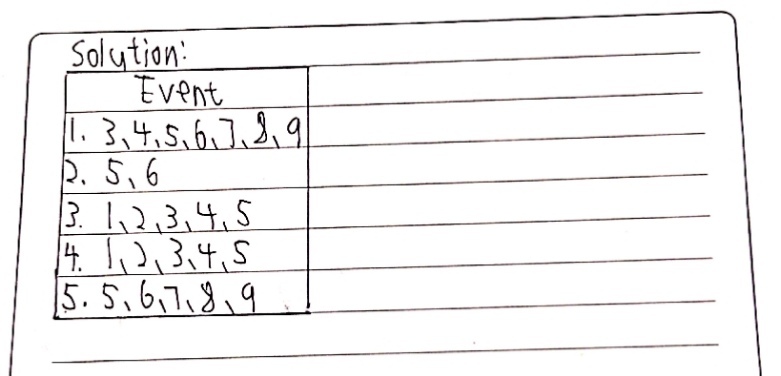 Solution:
Event
1. 3,4,5,6,7,8,9
2. 5,6
3. 1,2,3,4,5
4. 1,2,3,4,5
5. 5,6,7,8,9